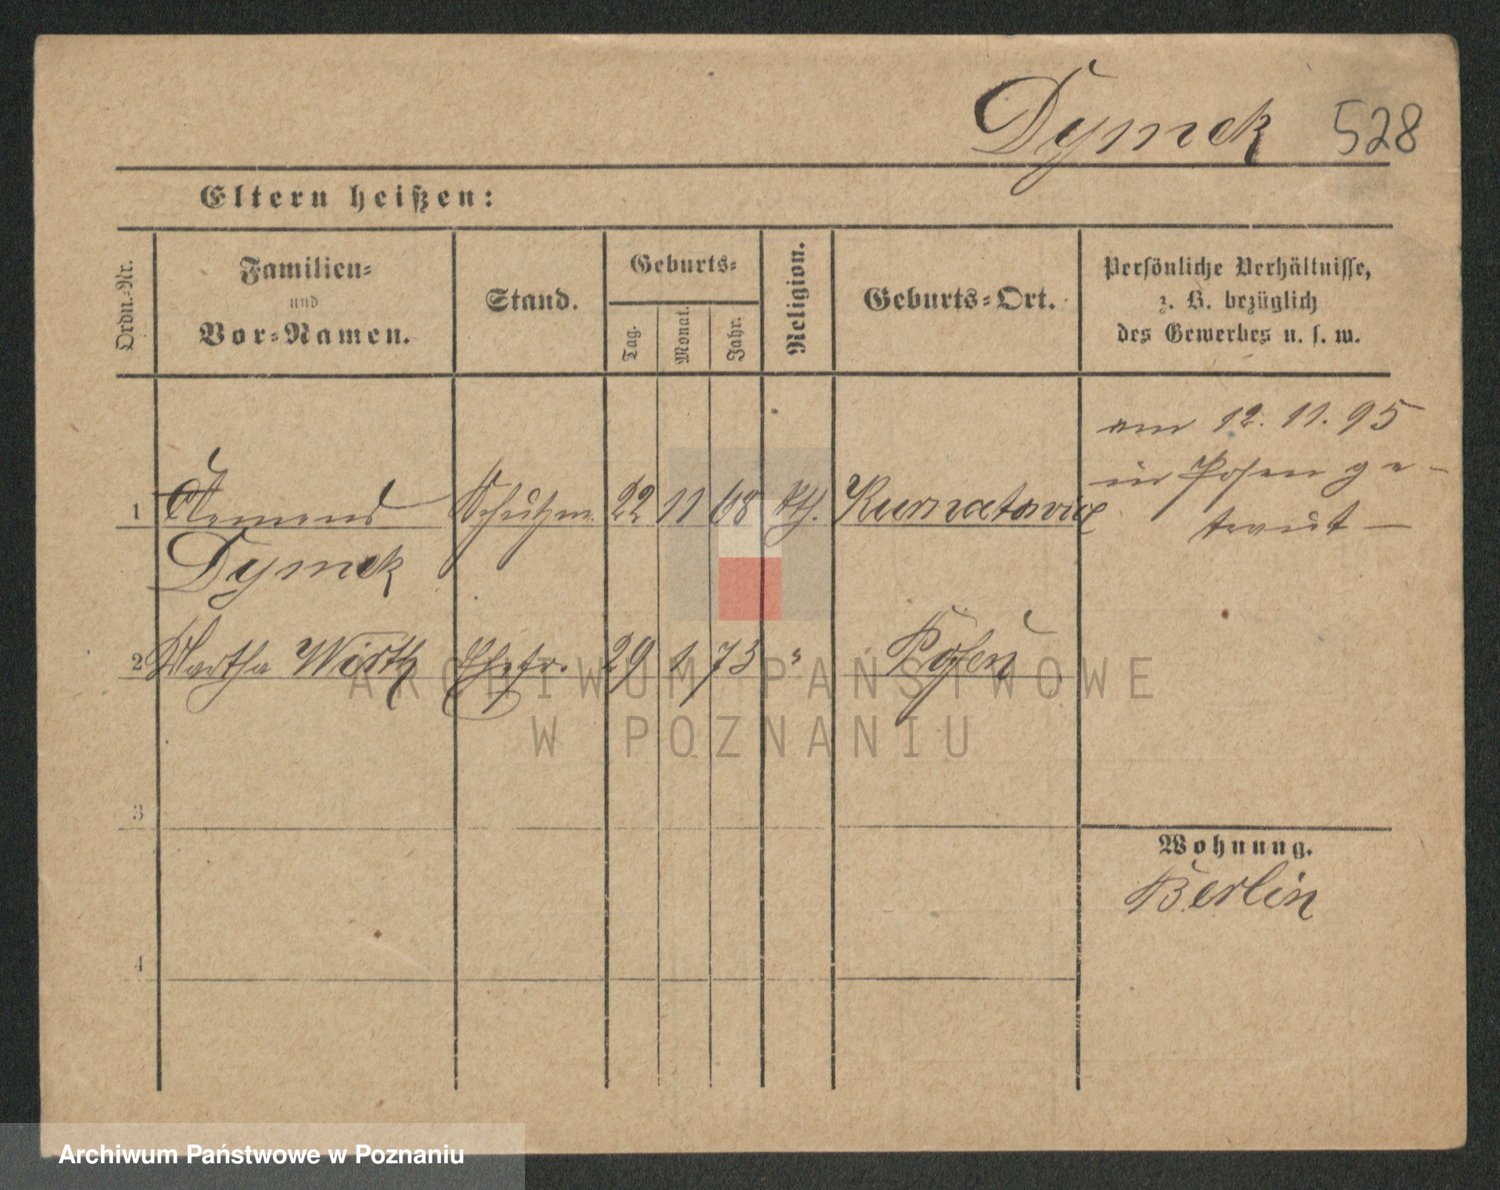 Dymek 528
Eltern heißen:
Ordn.-Nr.
Familien-
und
Vor-Namen.
Stand.
Geburts-
Tag.
Monat.
Jahr.
Religion.
Geburts-Ort.
Persönliche Verhältnisse,
z. B. bezüglich
des Gewerbes u. s. w.
am 12. 11. 95
in Posen ge-
traut —
1 Clemens Schutzm. 22 11 68 kth. Kurnatowice
Dymek
2 Martha Wirth Ehefr. 29 1 73 " Posen
3
4
Wohnung.
Berlin
ARCHIWUM PAŃSTWOWE
W POZNANIU
Archiwum Państwowe w Poznaniu